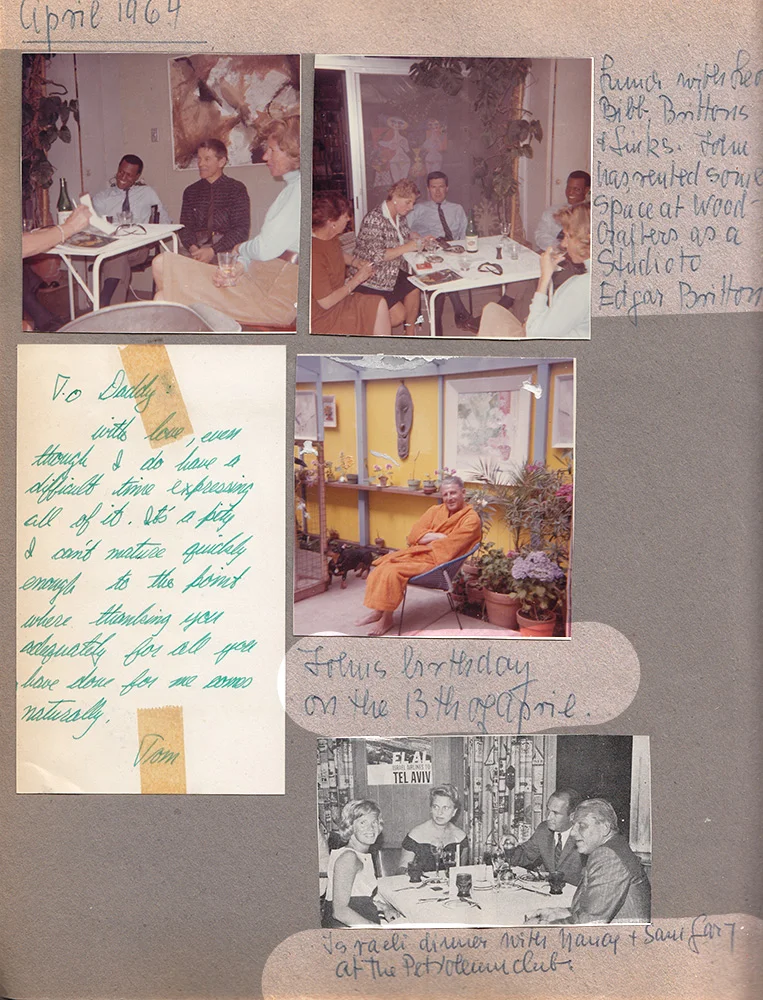 April 1964
Lunch with Leo
Bibb, Brittons
& Links. John
has rented some
space at Wood-
Crafters as a
Studio to
Edgar Britton
To Daddy:
with love, even
though I do have a
difficult time expressing
all of it. It's a pity
I can't mature quickly
enough to the point
where thanking you
adequately for all you
have done for me comes
naturally.
Tom
John's birthday
on the 13th of April.
EL AL
ISRAEL AIRLINES TO
TEL AVIV
Israeli dinner with Nancy + Sam Gary
at the Petroleum club.